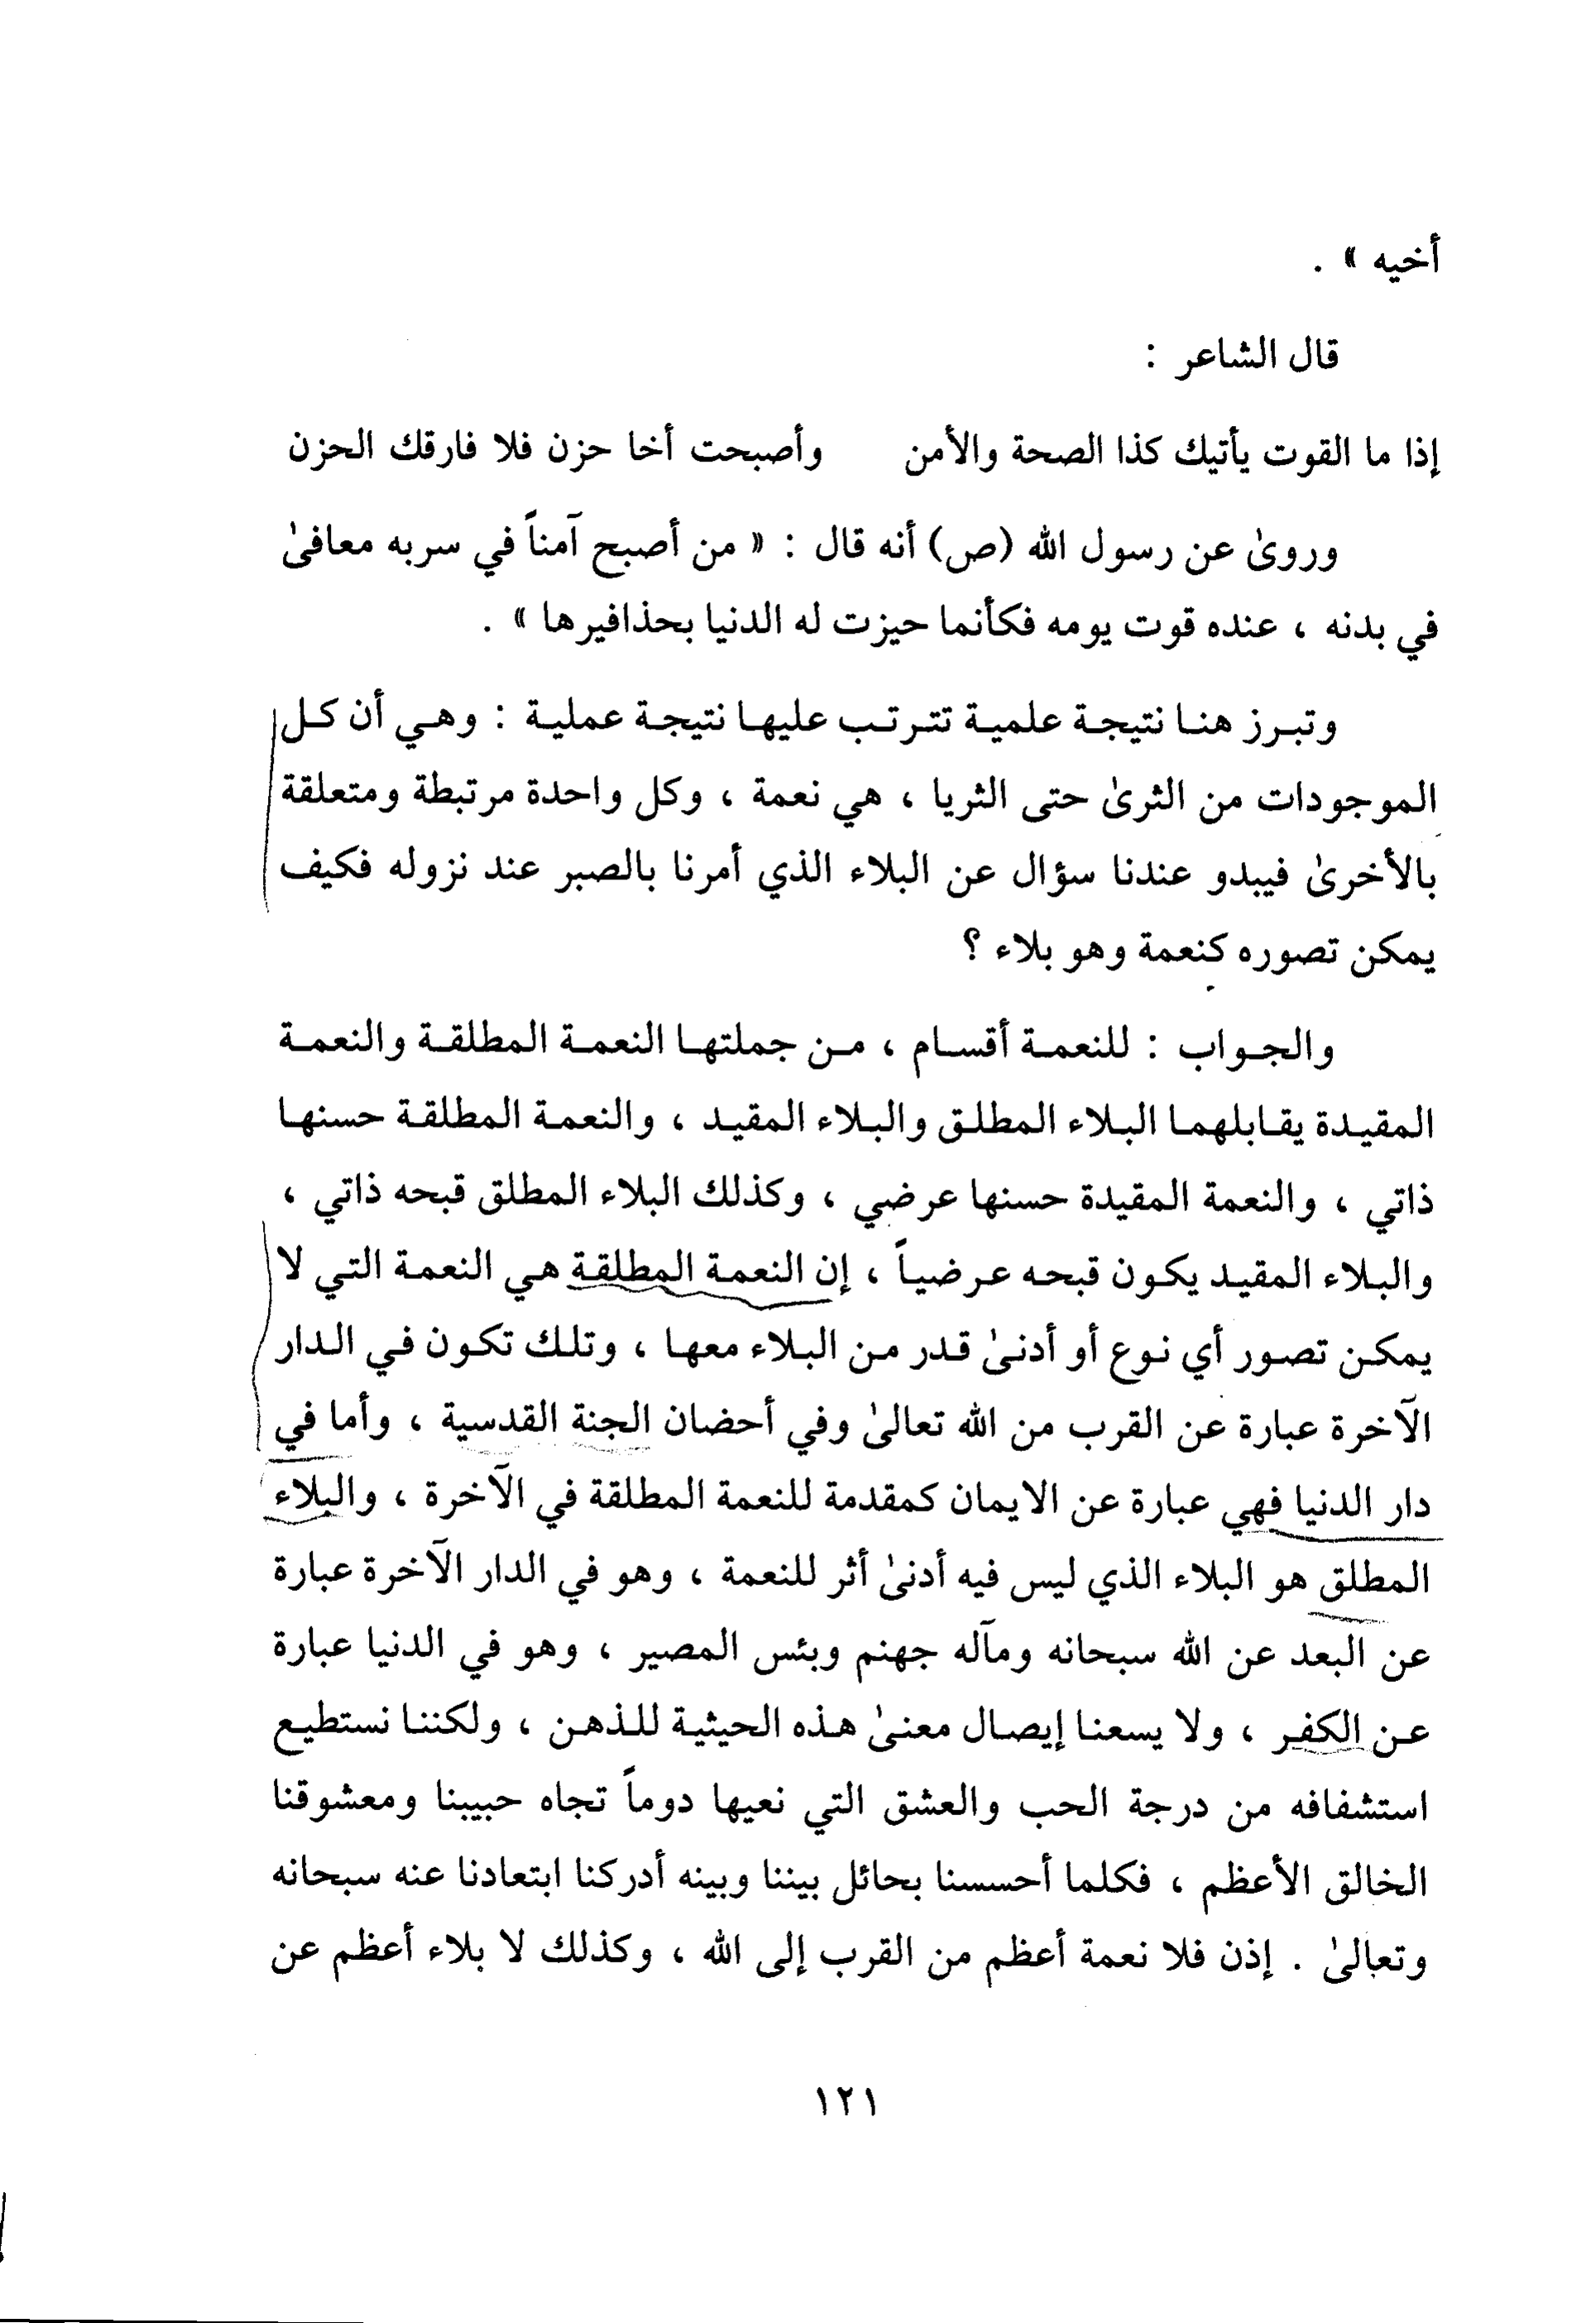 أخيه » .
قال الشاعر :
إذا ما القوت يأتيك كذا الصحة والأمن وأصبحت أخا حزن فلا فارقك الحزن
وروىٰ عن رسول الله (ص) أنه قال : « من أصبح آمناً في سربه معافىٰ
في بدنه ، عنده قوت يومه فكأنما حيزت له الدنيا بحذافيرها » .
وتبرز هنا نتيجة علمية تترتب عليها نتيجة عملية : وهي أن كل
الموجودات من الثرىٰ حتى الثريا ، هي نعمة ، وكل واحدة مرتبطة ومتعلقة
بالأخرىٰ فيبدو عندنا سؤال عن البلاء الذي أمرنا بالصبر عند نزوله فكيف
يمكن تصوره كنعمة وهو بلاء ؟
والجواب : للنعمة أقسام ، من جملتها النعمة المطلقة والنعمة
المقيدة يقابلهما البلاء المطلق والبلاء المقيد ، والنعمة المطلقة حسنها
ذاتي ، والنعمة المقيدة حسنها عرضي ، وكذلك البلاء المطلق قبحه ذاتي ،
والبلاء المقيد يكون قبحه عرضياً ، إن النعمة المطلقة هي النعمة التي لا
يمكن تصور أي نوع أو أدنىٰ قدر من البلاء معها ، وتلك تكون في الدار
الآخرة عبارة عن القرب من الله تعالىٰ وفي أحضان الجنة القدسية ، وأما في
دار الدنيا فهي عبارة عن الايمان كمقدمة للنعمة المطلقة في الآخرة ، والبلاء
المطلق هو البلاء الذي ليس فيه أدنىٰ أثر للنعمة ، وهو في الدار الآخرة عبارة
عن البعد عن الله سبحانه ومآله جهنم وبئس المصير ، وهو في الدنيا عبارة
عن الكفر ، ولا يسعنا إيصال معنىٰ هذه الحيثية للذهن ، ولكننا نستطيع
استشفافه من درجة الحب والعشق التي نعيها دوماً تجاه حبيبنا ومعشوقنا
الخالق الأعظم ، فكلما أحسسنا بحائل بيننا وبينه أدركنا ابتعادنا عنه سبحانه
وتعالىٰ . إذن فلا نعمة أعظم من القرب إلى الله ، وكذلك لا بلاء أعظم عن
١٢١